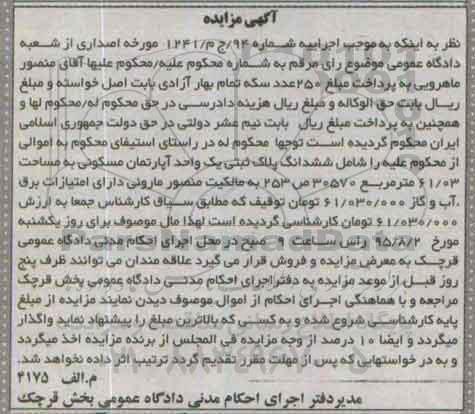 آگهی مزایده
نظر به اینکه به موجب اجراییه شماره ۹۴/ج م/۱۲۴۱ مورخه اصداری از شعبه
دادگاه عمومی موضوع رای مرقم به شماره محکوم علیه/محکوم علیها آقای منصور
ماهرویی به پرداخت مبلغ ۲۵۰عدد سکه تمام بهار آزادی بابت اصل خواسته و مبلغ
ریال بابت حق الوکاله و مبلغ ریال هزینه دادرسی در حق محکوم له/محکوم لها و
همچنین به پرداخت مبلغ ریال بابت نیم عشر دولتی در حق دولت جمهوری اسلامی
ایران محکوم گردیده است توجها محکوم له در راستای استیفای محکوم به اموالی
از محکوم علیه را شامل ششدانگ پلاک ثبتی یک واحد آپارتمان مسکونی به مساحت
۶۱/۰۳ مترمربع ۳۰۵۷۰ ص ۲۵۳ به مالکیت منصور مارونی دارای امتیازات برق
،آب و گاز ۶۱/۰۳۰/۰۰۰ تومان توقیف که مطابق سیاق کارشناس جمعا به ارزش
۶۱/۰۳۰/۰۰۰ تومان کارشناسی گردیده است لهذا مال موصوف برای روز یکشنبه
مورخ ۹۵/۸/۲ راس ساعت ۱۰ صبح در محل اجرای احکام مدنی دادگاه عمومی
قرچک به معرض مزایده و فروش قرار می گیرد علاقه مندان می توانند ظرف پنج
روز قبل از موعد مزایده به دفتر اجرای احکام مدنی دادگاه عمومی بخش قرچک
مراجعه و با هماهنگی اجرای احکام از اموال موصوف دیدن نمایند مزایده از مبلغ
پایه کارشناسی شروع شده و به کسی که بالاترین مبلغ را پیشنهاد نماید واگذار
میگردد و ایضا ۱۰ درصد از وجه مزایده فی المجلس از برنده مزایده اخذ میگردد
و به در خواستهایی که پس از مهلت مقرر تقدیم گردد ترتیب اثر داده نخواهد شد.
م.الف ۴۱۷۵
مدیر دفتر اجرای احکام مدنی دادگاه عمومی بخش قرچک